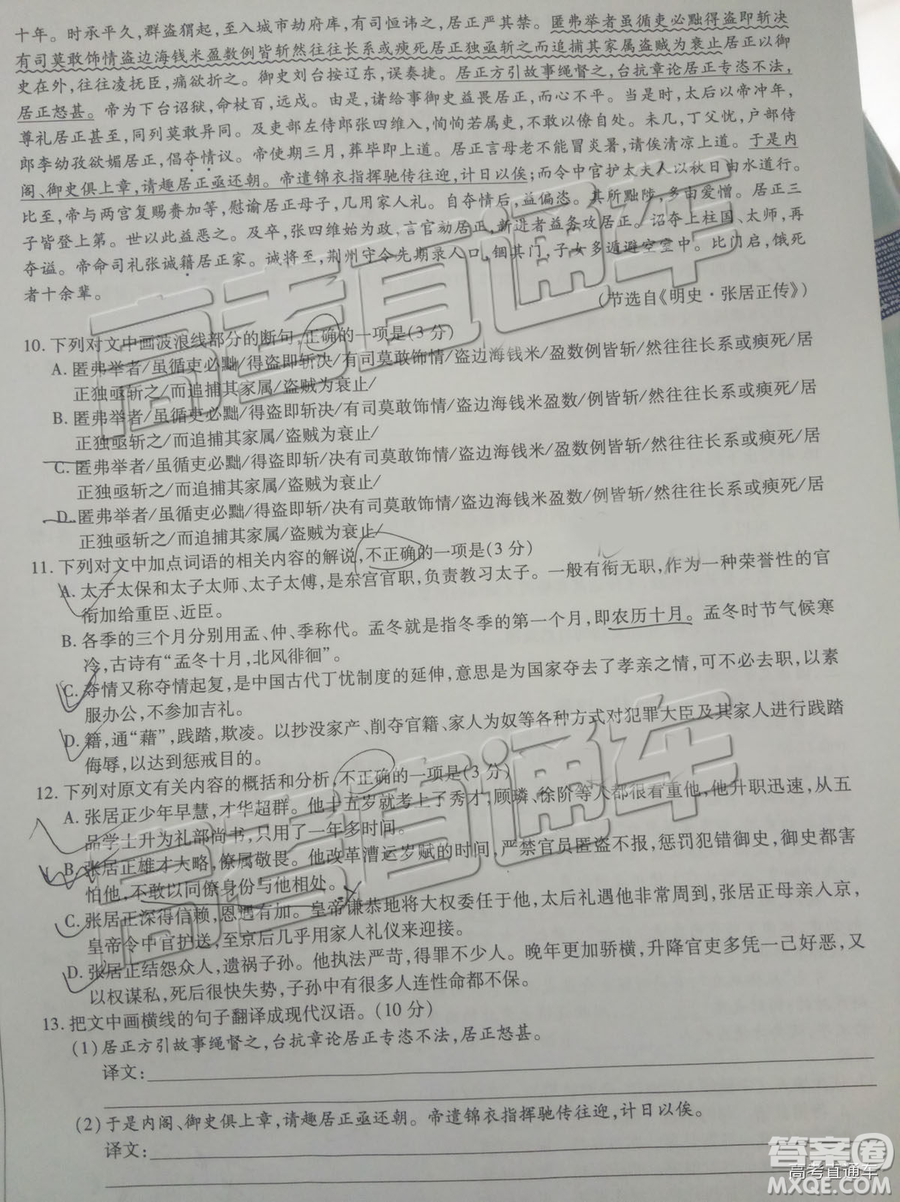 十年。时承平久,群盗猬起,至入城市劫府库,有司恒讳之,居正严其禁。匿弗举者虽循吏必黜得盗即斩决
有司莫敢饰情盗边海钱米盈数例皆斩然往往长系或瘐死居正独亟斩之而追捕其家属盗贼为衰止居正以御
史在外,往往凌抚臣,痛欲折之。御史刘台按辽东,误奏捷。居正方引故事绳督之,台抗章论居正专恣不法,
居正怒甚。帝为下台诏狱,命杖百,远戍。由是,诸给事御史益畏居正,而心不平。当是时,太后以帝冲年,
尊礼居正甚至,同列莫敢异同。及吏部左侍郎张四维入,恂恂若属吏,不敢以僚自处。未几,丁父忧,户部侍
郎李幼孜欲媚居正,倡夺情议。帝使期三月,葬毕即上道。居正言母老不能冒炎暑,请俟清凉上道。于是内
阁、御史俱上章,请趣居正亟还朝。帝遣锦衣指挥驰传往迎,计日以俟;而令中官护太夫人以秋日由水道行。
比至,帝与两宫复赐赉加等,慰谕居正母子,几用家人礼。自夺情后,益偏恣。其所黜陟,多由爱憎。居正三
子皆登上第。世以此益恶之。及卒,张四维始为政,言官劾居正,新进者益务攻居正。诏夺上柱国、太师,再
夺谥。帝命司礼张诚籍居正家。诚将至,荆州守令先期录人口,锢其门,子女多遁避空室中。比门启,饿死
者十余辈。
(节选自《明史·张居正传》)
10. 下列对文中画波浪线部分的断句,正确的一项是(3 分)
A. 匿弗举者/虽循吏必黜/得盗即斩决/有司莫敢饰情/盗边海钱米盈数例皆斩/然往往长系或瘐死/居
正独亟斩之/而追捕其家属/盗贼为衰止/
B. 匿弗举者/虽循吏必黜/得盗即斩决/有司莫敢饰情/盗边海钱米盈数/例皆斩/然往往长系或瘐死/居
正独亟斩之/而追捕其家属/盗贼为衰止/
C. 匿弗举者/虽循吏必黜/得盗即斩/决有司莫敢饰情/盗边海钱米/盈数例皆斩/然往往长系或瘐死/居
正独亟斩之/而追捕其家属/盗贼为衰止/
D. 匿弗举者/虽循吏必黜/得盗即斩/决有司莫敢饰情/盗边海钱米盈数/例皆斩/然往往长系或瘐死/居
正独亟斩之/而追捕其家属/盗贼为衰止/
11. 下列对文中加点词语的相关内容的解说,不正确的一项是(3 分)
A. 太子太保和太子太师、太子太傅,是东宫官职,负责教习太子。一般有衔无职,作为一种荣誉性的官
衔加给重臣、近臣。
B. 各季的三个月分别用孟、仲、季称代。孟冬就是指冬季的第一个月,即农历十月。孟冬时节气候寒
冷,古诗有“孟冬十月,北风徘徊”。
C. 夺情又称夺情起复,是中国古代丁忧制度的延伸,意思是为国家夺去了孝亲之情,可不必去职,以素
服办公,不参加吉礼。
D. 籍,通“藉”,践踏,欺凌。以抄没家产、削夺官籍、家人为奴等各种方式对犯罪大臣及其家人进行践踏
侮辱,以达到惩戒目的。
12. 下列对原文有关内容的概括和分析,不正确的一项是(3 分)
A. 张居正少年早慧,才华超群。他十五岁就考上了秀才,顾璘、徐阶等人都很看重他,他升职迅速,从五
品学士升为礼部尚书,只用了一年多时间。
B. 张居正雄才大略,僚属敬畏。他改革漕运岁赋的时间,严禁官员匿盗不报,惩罚犯错御史,御史都害
怕他,不敢以同僚身份与他相处。
C. 张居正深得信赖,恩遇有加。皇帝谦恭地将大权委任于他,太后礼遇他非常周到,张居正母亲入京,
皇帝令中官护送,至京后几乎用家人礼仪来迎接。
D. 张居正结怨众人,遗祸子孙。他执法严苛,得罪不少人。晚年更加骄横,升降官吏多凭一己好恶,又
以权谋私,死后很快失势,子孙中有很多人连性命都不保。
13. 把文中画横线的句子翻译成现代汉语。(10 分)
(1) 居正方引故事绳督之,台抗章论居正专恣不法,居正怒甚。
译文:
(2) 于是内阁、御史俱上章,请趣居正亟还朝。帝遣锦衣指挥驰传往迎,计日以俟。
译文:
高考直通车
高考直通车
高考直通车
答案圈
MXQE.COM
高考直通车